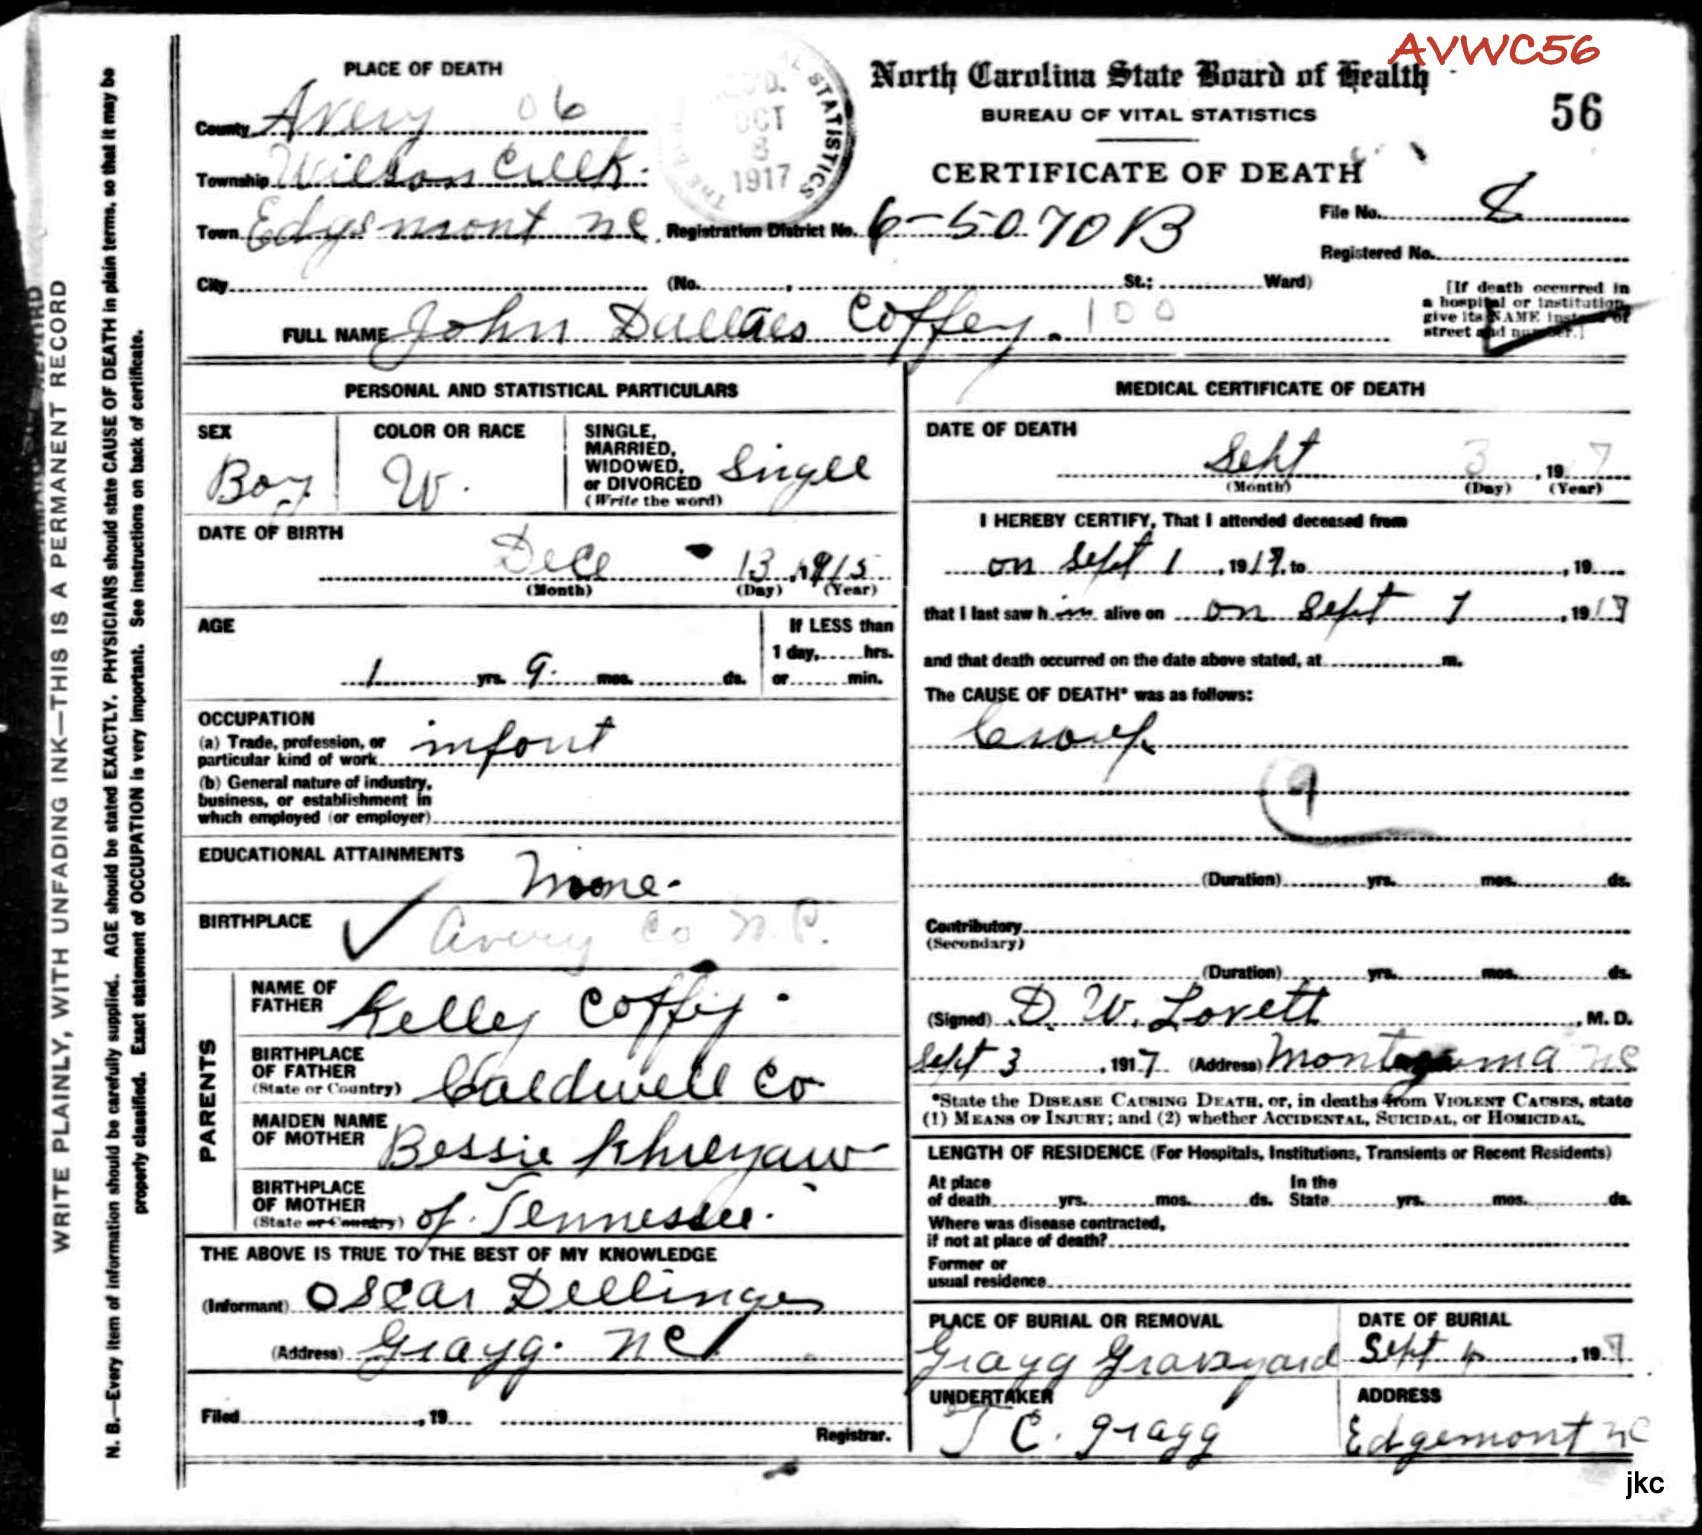 AVWC56
PLACE OF DEATH
North Carolina State Board of Health
BUREAU OF VITAL STATISTICS
56
CERTIFICATE OF DEATH
County Avery 06
Township Wilson Creek.
OCT
8
1917
STATISTICS
Town Edgemont NC. Registration District No. 6-5070B
File No. 8
Registered No.
City (No. , St.; Ward)
[If death occurred in
a hospital or institution
give its NAME instead of
street and number.]
FULL NAME John Dallas Coffey. 100
PERSONAL AND STATISTICAL PARTICULARS
SEX
Boy
COLOR OR RACE
W.
SINGLE,
MARRIED,
WIDOWED,
or DIVORCED
(Write the word)
Singel
DATE OF BIRTH
Dece 13, 1915
(Month) (Day) (Year)
AGE
1 yrs. 9. mos. ds.
If LESS than
1 day, hrs.
or min.
OCCUPATION
(a) Trade, profession, or
particular kind of work infant
(b) General nature of industry,
business, or establishment in
which employed (or employer)
EDUCATIONAL ATTAINMENTS
None-
BIRTHPLACE
Avery Co N.C.
PARENTS
NAME OF
FATHER Kelley Coffey.
BIRTHPLACE
OF FATHER
(State or Country) Caldwell Co
MAIDEN NAME
OF MOTHER Bessie
BIRTHPLACE
OF MOTHER
(State or Country) of Tennessee.
THE ABOVE IS TRUE TO THE BEST OF MY KNOWLEDGE
(Informant) Oscar Dellinger
(Address) Grayg. NC
Filed , 19
Registrar.
MEDICAL CERTIFICATE OF DEATH
DATE OF DEATH
Sept 3, 19 7
(Month) (Day) (Year)
I HEREBY CERTIFY, That I attended deceased from
on Sept 1, 1917, to , 19
that I last saw him alive on on Sept 1, 1917
and that death occurred on the date above stated, at m.
The CAUSE OF DEATH* was as follows:
Croup
9
(Duration) yrs. mos. ds.
Contributory
(Secondary)
(Duration) yrs. mos. ds.
(Signed) D. W. Lovett, M. D.
Sept 3, 1917 (Address) Montezuma NC
*State the DISEASE CAUSING DEATH, or, in deaths from VIOLENT CAUSES, state
(1) MEANS OF INJURY; and (2) whether ACCIDENTAL, SUICIDAL, or HOMICIDAL.
LENGTH OF RESIDENCE (For Hospitals, Institutions, Transients or Recent Residents)
At place
of death yrs. mos. ds.
In the
State yrs. mos. ds.
Where was disease contracted,
if not at place of death?
Former or
usual residence
PLACE OF BURIAL OR REMOVAL
Grayg Graveyard
DATE OF BURIAL
Sept 4, 19 7
UNDERTAKER
J C. Gragg
ADDRESS
Edgemont NC
jkc
WRITE PLAINLY, WITH UNFADING INK—THIS IS A PERMANENT RECORD
N. B.—Every item of information should be carefully supplied. AGE should be stated EXACTLY. PHYSICIANS should state CAUSE OF DEATH in plain terms, so that it may be
properly classified. Exact statement of OCCUPATION is very important. See instructions on back of certificate.